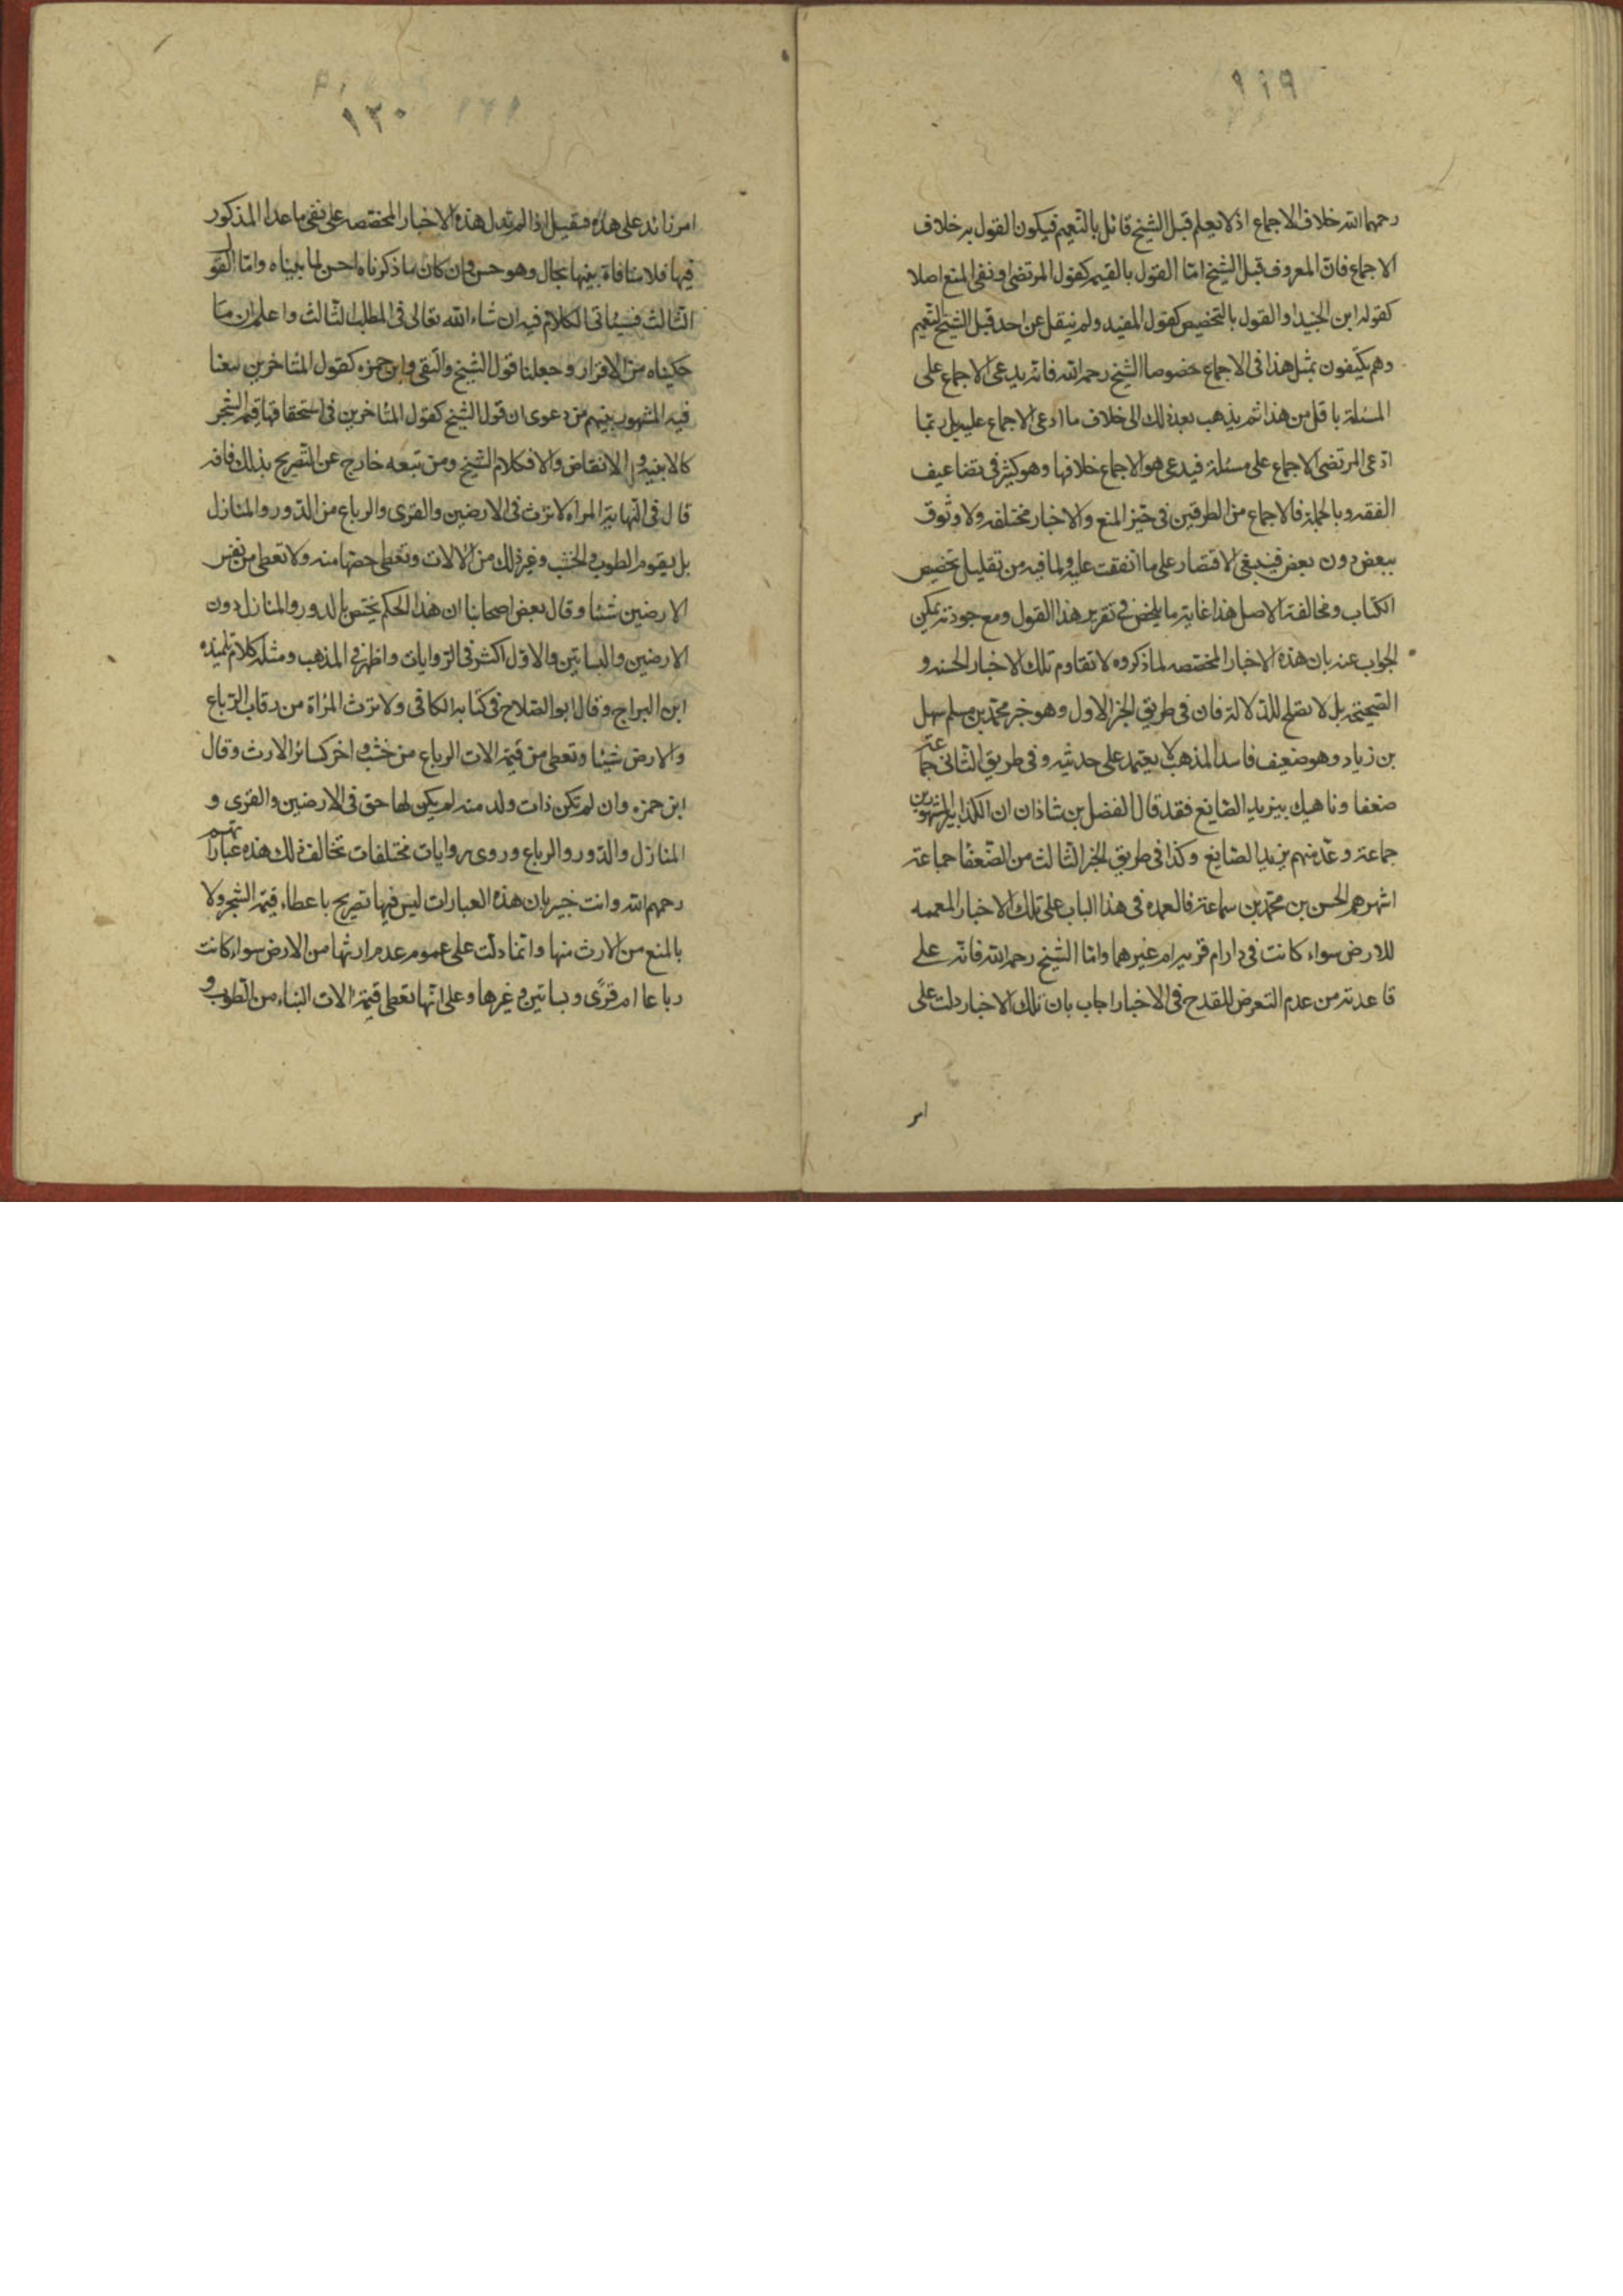 ١١٩
رحمهما الله خلاف الاجماع اذ لا نعلم قبل الشيخ قائل بالتعميم فيكون القول به خلاف
الاجماع فان المعروف قبل الشيخ اما القول بالقيم كقول المرتضى او نفى المنع اصلا
كقول ابن الجنيد او القول بالتخصيص كقول المفيد ولم ينقل عن احد قبل الشيخ التعميم
وهم يكتفون بمثل هذا فى الاجماع خصوصا الشيخ رحمه الله فانه يدعى الاجماع على
المسئلة باقل من هذا ثم يذهب بعد ذلك الى خلاف ما ادعى الاجماع عليه بل ربما
ادعى المرتضى الاجماع على مسئلة فيدعى هو الاجماع خلافها وهو كثير فى تضاعيف
الفقه وبالجملة فالاجماع من الطرفين فى حيز المنع والاخبار مختلفه ولا وثوق
ببعض دون بعض فينبغى الاقتصار على ما اتفقت عليه ولما فيه من تقليل تخصيص
الكتاب ومخالفة الاصل هذا غاية ما يلخص فى تقرير هذا القول ومع جودته يمكن
الجواب عنه بان هذه الاخبار المختصه لما ذكروه لا تقاوم تلك الاخبار الحسنه و
الصحيحة بل لا تصلح للدلالة فان فى طريق الخبر الاول وهو خبر محمد بن مسلم سهل
بن زياد وهو ضعيف فاسد المذهب لا يعتمد على حديثه وفى طريق الثانى جماعة
ضعفا وناهيك بيزيد الصايغ فقد قال الفضل بن شاذان ان الكذابين المشهورين
جماعة وعد منهم يزيد الصايغ وكذا فى طريق الخبر الثالث من الضعفا جماعة
اشهرهم الحسن بن محمد بن سماعة فالعمده فى هذا الباب على تلك الاخبار المعممه
للارض سواء كانت فى دار ام قرية ام غيرهما واما الشيخ رحمه الله فانه على
قاعدته من عدم التعرض للقدح فى الاخبار اجاب بان تلك الاخبار دلت على
امر
١٢٠
امر زائد على هذه فيقبل اذا لم تدل هذه الاخبار المختصه على نفى ما عدا المذكور
فيها فلا منافاة بينها بحال وهو حسن وان كان ما ذكرناه احسن لما بيناه واما القول
الثالث فسياتى الكلام فيه ان شاء الله تعالى فى المطلب الثالث واعلم ان ما
حكيناه من الاقرار وجعلنا قول الشيخ والتقى وابن حمزه كقول المتاخرين تبعنا
فيه المشهور بينهم من دعوى ان قول الشيخ كقول المتاخرين فى استحقاقها قيمة الشجر
كالابنيه و الانقاض والا فكلام الشيخ ومن تبعه خارج عن التصريح بذلك فانه
قال فى النهاية المراه لا ترث فى الارضين والقرى والرباع من الدور والمنازل
بل يقوم الطوب والخشب وغير ذلك من الالات وتعطى حصتها منه ولا تعطى من نفس
الارضين شيئا وقال بعض اصحابنا ان هذا الحكم يختص بالدور والمنازل دون
الارضين والبساتين والاول اكثر فى الروايات واظهر فى المذهب ومثله كلام تلميذه
ابن البراج وقال ابو الصلاح فى كتابه الكافى ولا ترث المراة من رقاب الرباع
والارض شيئا وتعطى من قيمة الات الرباع من خشب و اخر كسائر الارث وقال
ابن حمزه وان لم تكن ذات ولد منه لم يكن لها حق فى الارضين والقرى و
المنازل والدور والرباع وروى روايات مختلفات تخالف ذلك هذه عباراتهم
رحمهم الله وانت خبير بان هذه العبارات ليس فيها تصريح باعطاء قيمة الشجر ولا
بالمنع من الارث منها وانما دلت على عموم عدم ارثها من الارض سواء كانت
رباعا ام قرى وبساتين وغيرها وعلى انها تعطى قيمة الات البناء من الطوب و